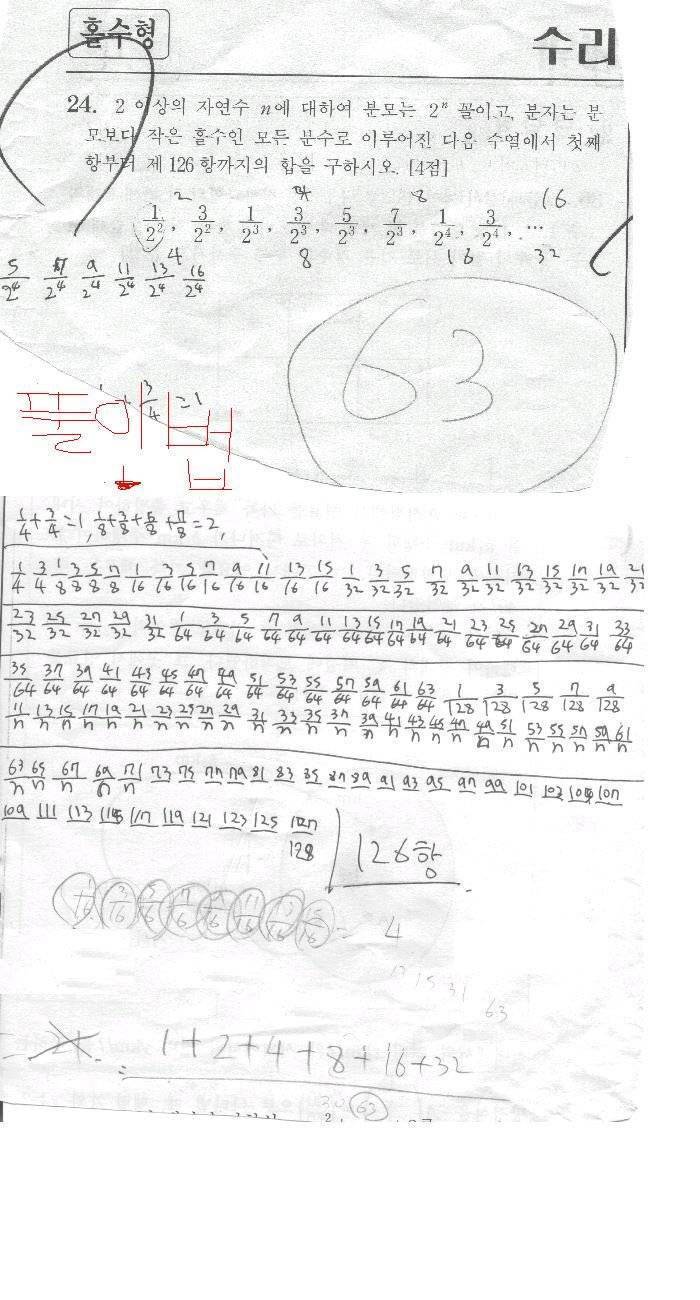 홀수형
수리
24. 2 이상의 자연수 n에 대하여 분모는 2ⁿ 꼴이고, 분자는 분
모보다 작은 홀수인 모든 분수로 이루어진 다음 수열에서 첫째
항부터 제 126 항까지의 합을 구하시오. [4점]
2 4 8 16
1/2², 3/2², 1/2³, 3/2³, 5/2³, 7/2³, 1/2⁴, 3/2⁴, ⋯
4 8 16 32
5/2⁴ 7/2⁴ 9/2⁴ 11/2⁴ 13/2⁴ 16/2⁴
63
3/4 =1
풀이법
1/4+3/4=1, 1/8+3/8+5/8+7/8=2,
1/4 3/4 1/8 3/8 5/8 7/8 1/16 3/16 5/16 7/16 9/16 11/16 13/16 15/16 1/32 3/32 5/32 7/32 9/32 11/32 13/32 15/32 17/32 19/32 21/32
23/32 25/32 27/32 29/32 31/32 1/64 3/64 5/64 7/64 9/64 11/64 13/64 15/64 17/64 19/64 21/64 23/64 25/64 27/64 29/64 31/64 33/64
35/64 37/64 39/64 41/64 43/64 45/64 47/64 49/64 51/64 53/64 55/64 57/64 59/64 61/64 63/64 1/128 3/128 5/128 7/128 9/128
11/n 13/n 15/n 17/n 19/n 21/n 23/n 25/n 27/n 29/n 31/n 33/n 35/n 37/n 39/n 41/n 43/n 45/n 47/n 49/n 51/n 53/n 55/n 57/n 59/n 61/n
63/n 65/n 67/n 69/n 71/n 73 75 77 79 81 83 85 87 89 91 93 95 97 99 101 103 105 107
109 111 113 115 117 119 121 123 125 127/128 126항
1/16 3/16 5/16 7/16 9/16 11/16 13/16 15/16 = 4
15 31
63
= 1+2+4+8+16+32
30 63